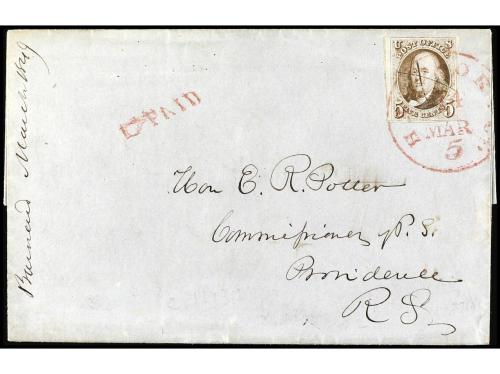 U S
POST OFFICE
5 FIVE CENTS 5
MAR
5
PAID
Barnard March 1849
Hon E. R. Potter
Commissioner P. S.
Providence
R. I.